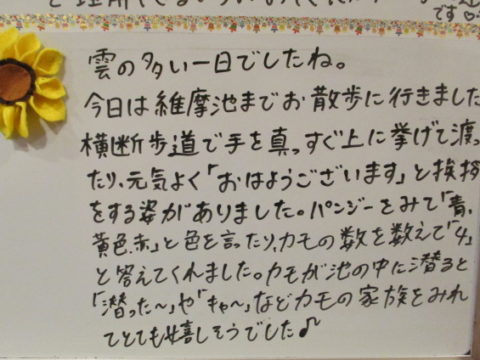 です♡
雲の多い一日でしたね。
今日は維摩池までお散歩に行きました
横断歩道で手を真っすぐ上に挙げて渡っ
たり、元気よく「おはようございます」と挨拶
をする姿がありました。パンジーをみて「青、
黄色、赤」と色を言ったり、カモの数を数えて「4」
と答えてくれました。カモが池の中に潜ると
「潜った〜」や「キャ〜」などカモの家族をみれ
てとても嬉しそうでした♪